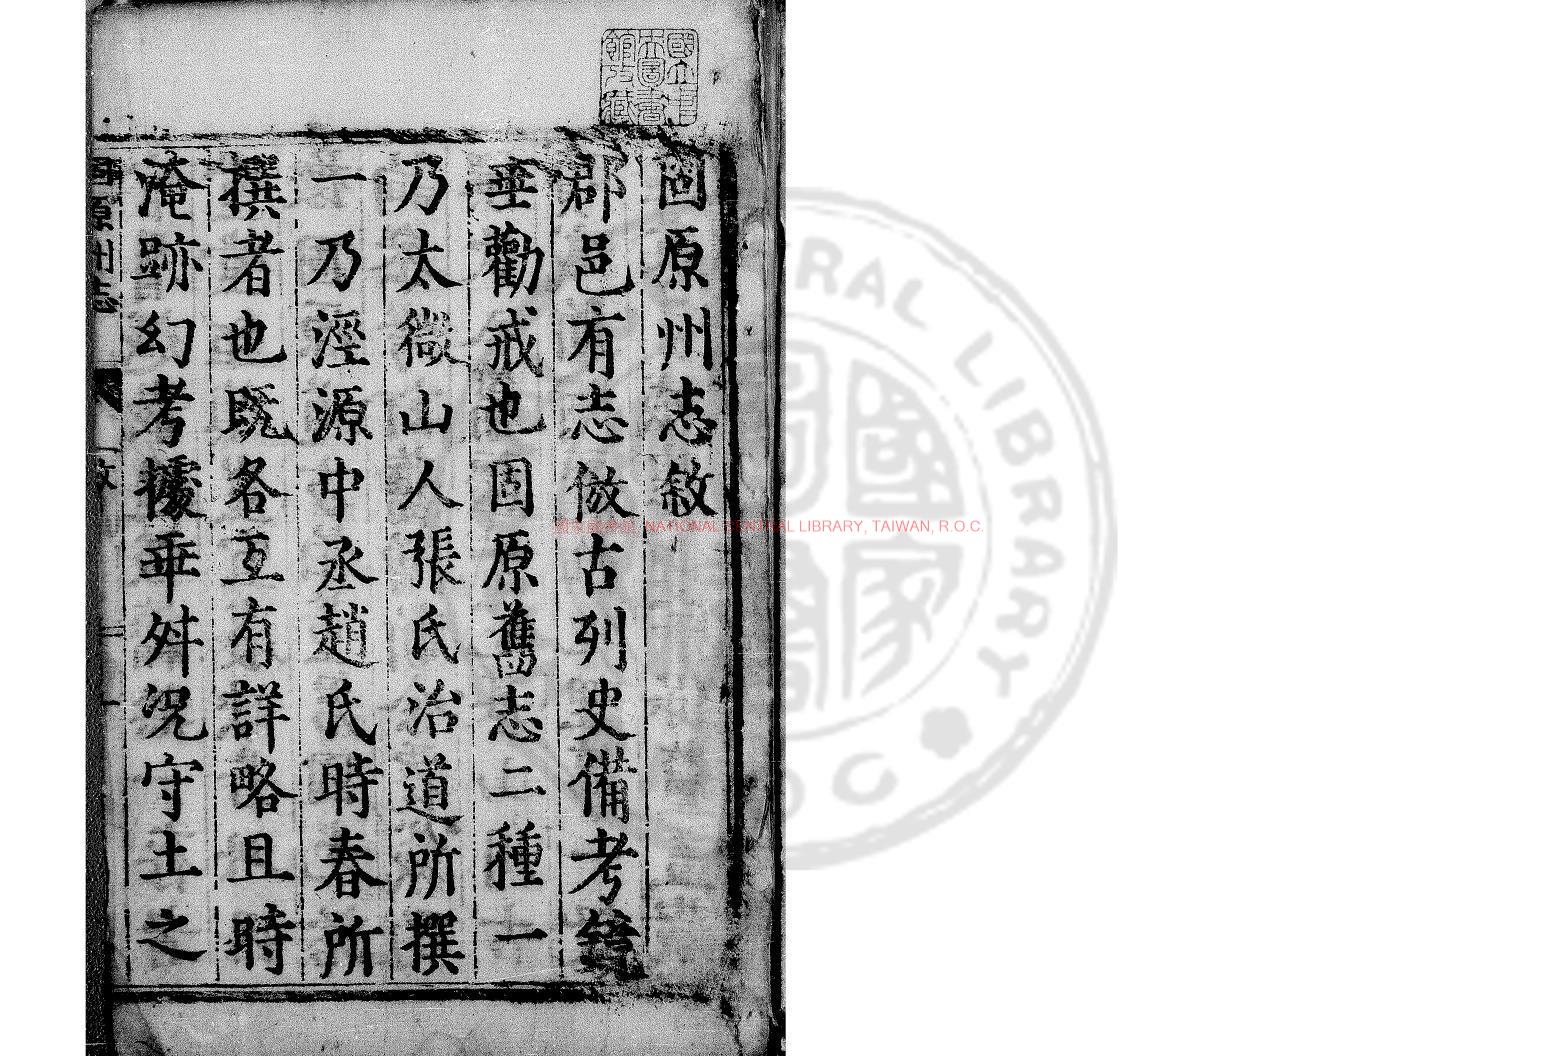 固原州志敘
郡邑有志倣古列史備考鏡
垂勸戒也固原舊志二種一
乃太微山人張氏治道所撰
一乃涇源中丞趙氏時春所
撰者也既各互有詳略且時
淹跡幻考據乖舛況守土之
固原州志 敘 一
國立中央圖書館收藏
NATIONAL CENTRAL LIBRARY, TAIWAN, R.O.C.
RAL LIBRARY
國家圖書館